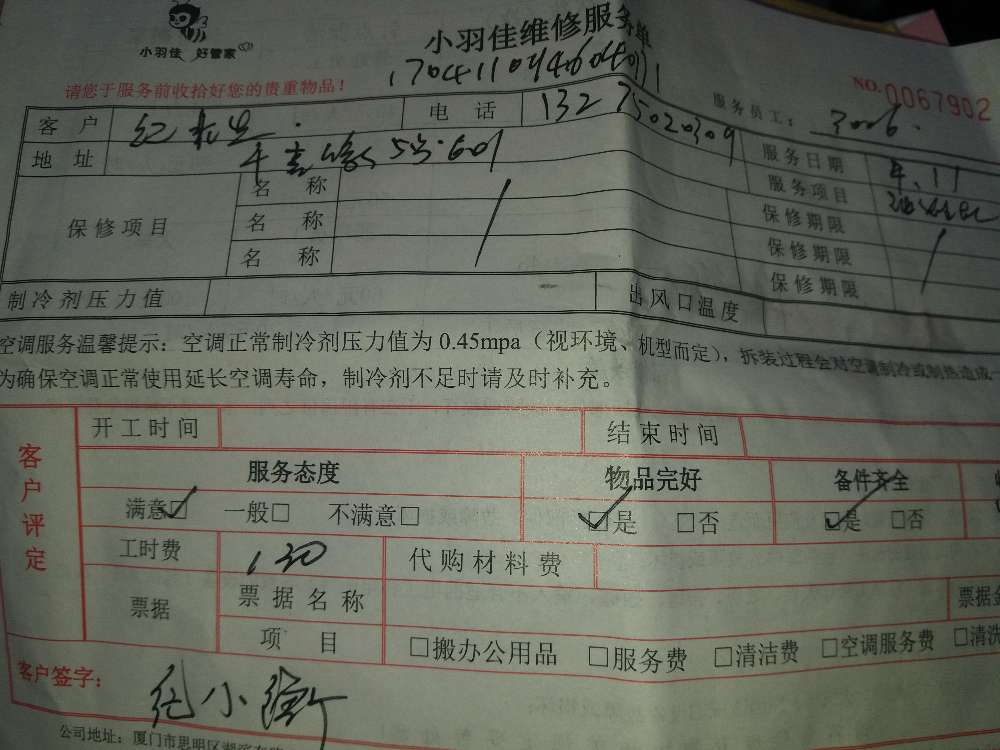 小羽佳 好管家
小羽佳维修服务单
请您于服务前收拾好您的贵重物品!
NO.0067902
客户 电话 13275020309 服务员工: 3006.
地址 5号.601 服务日期 4.11
保修项目 名称 服务项目
名称 保修期限
名称 保修期限
保修期限
制冷剂压力值 出风口温度
空调服务温馨提示:空调正常制冷剂压力值为0.45mpa(视环境、机型而定),拆装过程会对空调制冷或制热造成一
为确保空调正常使用延长空调寿命,制冷剂不足时请及时补充。
客户评定
开工时间 结束时间
服务态度 物品完好 备件齐全
满意☑ 一般□ 不满意□ ☑是 □否 ☑是 □否
工时费 130 代购材料费
票据 票据名称 票据金
项目 □搬办公用品 □服务费 □清洁费 □空调服务费 □清洗
客户签字:
公司地址:厦门市思明区湖滨